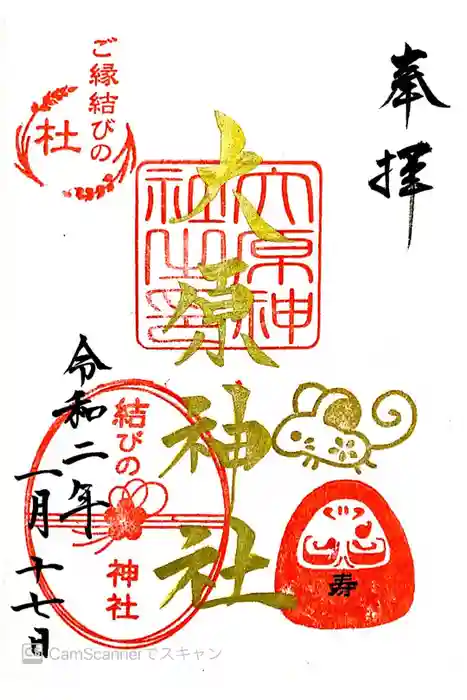 奉拝
ご縁結びの
杜
大原神社
大原神社之印
結びの
神社
寿
令和二年
一月十七日
CamScannerでスキャン